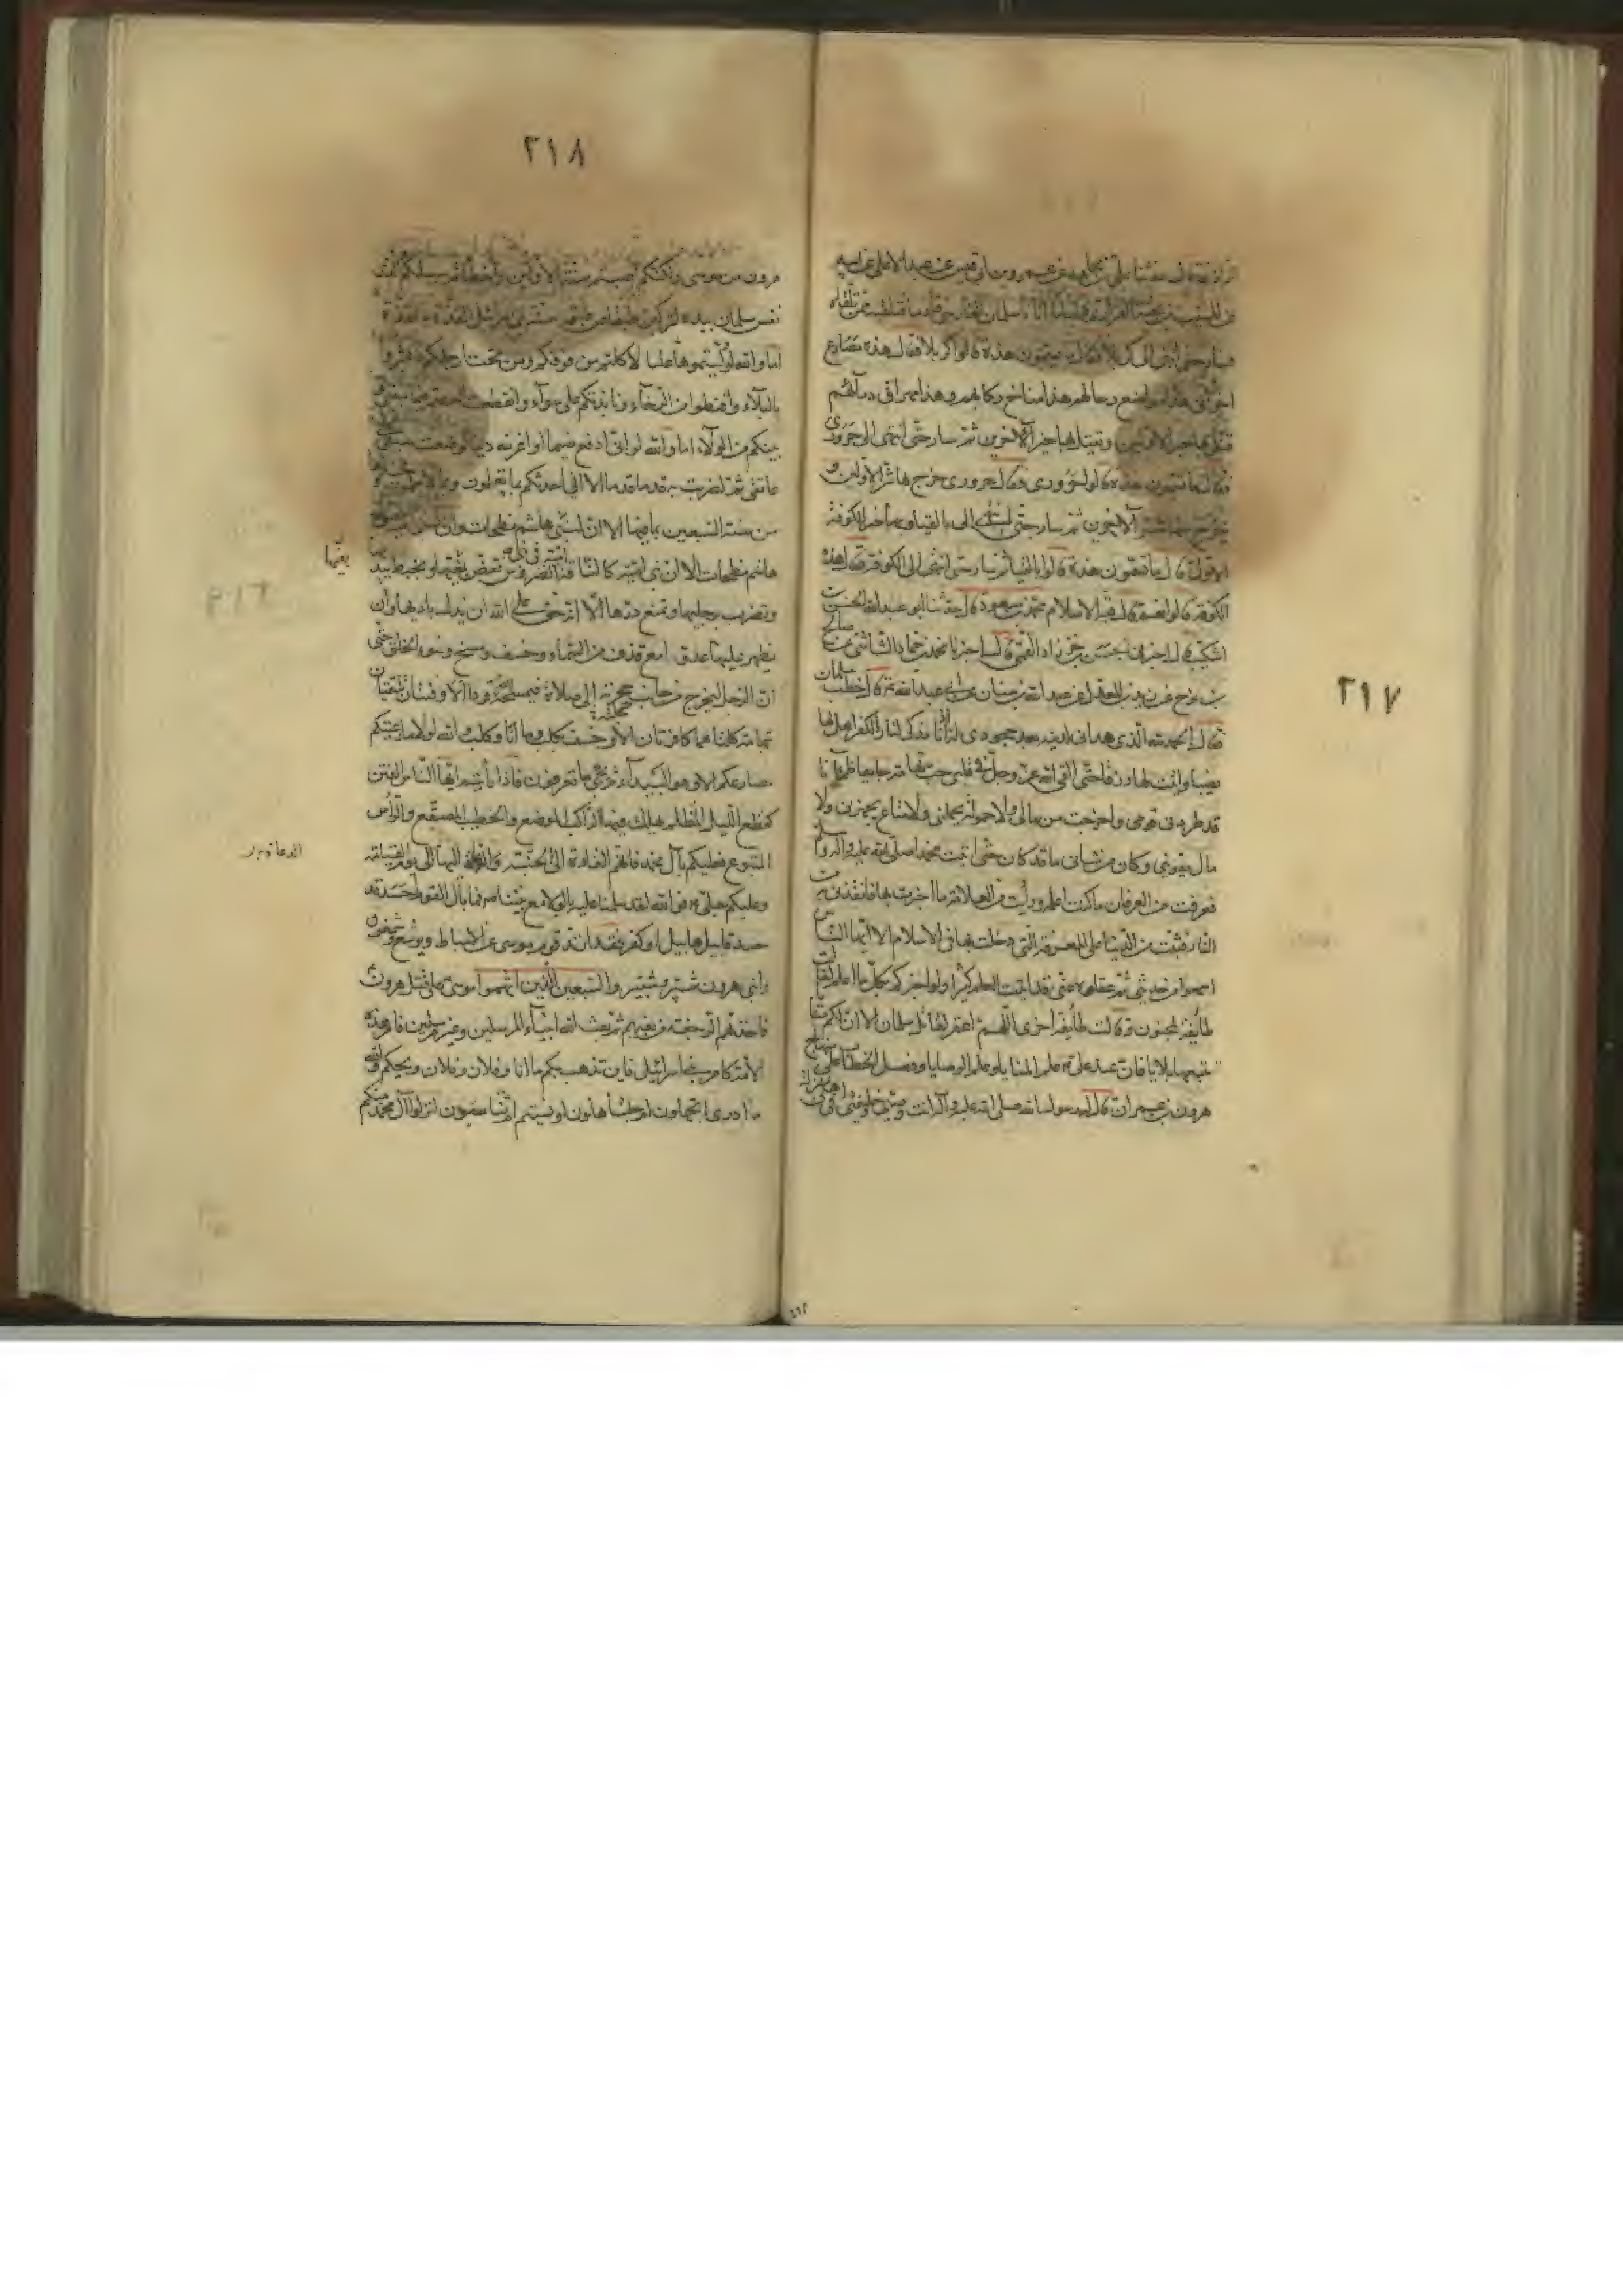 ٢١٧
عن المسيب بن
فسار حتى انتهى الى كربلا فقال ما تسمون هذه قالوا كربلا فقال هذه مصارع
اخوانى هذا موضع رحالهم هذا مناخ ركابهم وهذا مهراق دمائهم
قتل بها خير الاولين ويقتل بها خير الاخرين ثم سار حتى انتهى الى حرورى
فقال ما تسمون هذه قالوا حرورى فقال حرورى خرج بها شر الاولين و
يخرج بها شر الاخرين ثم سار حتى انتهى الى بانقيا وبها جسر الكوفة
الاول قال ما تسمون هذه قالوا بانقيا ثم سار حتى انتهى الى الكوفة قال هذه
الكوفة قالوا نعم قال قبة الاسلام محمد بن مسعود قال حدثنا ابو عبد الله الحسين بن
اشكيب قال اخبرنى الحسن بن خرزاد القمى قال اخبرنا محمد بن حماد الشاشى عن صالح
بن نوح عن زيد بن المعدل عن عبد الله بن سنان عن ابى عبد الله ع قال خطب سلمان
فقال الحمد لله الذى هدانى لدينه بعد جحودى له اذ انا مذكى لنار الكفر اهل لها
نصيبا واتيت لها رزقا حتى القى الله عز وجل فى قلبى حب تهامة فخرجت جايعا ظمآنا
قد طردنى قومى واخرجت من مالى ولا حمولة تحملنى ولا متاع يجهزنى ولا
مال يقوينى وكان من شانى ما قد كان حتى اتيت محمدا صلى الله عليه وآله
فعرفت من العرفان ما كنت اعلمه ورأيت من العلامة ما اخبرت بها فانقذنى به من
النار فثبت من الدنيا على المعرفة التى دخلت بها فى الاسلام الا ايها الناس
اسمعوا من حديثى ثم عقلوه عنى قد اتيت العلم كثيرا ولو اخبرتكم بكل ما اعلم لقالت
طائفة لمجنون وقالت طائفة اخرى اللهم اغفر لقاتل سلمان الا ان لكم منايا
تتبعها بلايا فان عند على ع علم المنايا وعلم الوصايا وفصل الخطاب على منهاج
هرون بن عمران قال له رسول الله صلى الله عليه وآله انت وصيى وخليفتى فى اهلى بمنزلة
٢١٨
هرون من موسى ولكنكم اصبتم سنة الاولين واخطأتم سبيلكم والذى
نفس سلمان بيده لتركبن طبقا عن طبق سنة بنى اسرائيل القذة بالقذة
اما والله لو وليتموها عليا لاكلتم من فوقكم ومن تحت ارجلكم فابشروا
بالبلاء واقنطوا من الرخاء ونابذتكم على سواء وانقطعت العصمة فيما بينى و
بينكم من الولاء اما والله لو انى ادفع ضيما او اعز لله دينا لوضعت سيفى على
عاتقى ثم لضربت به قدما قدما الا انى احدثكم بما تعلمون وبما لا تعلمون
من سنة السبعين بما فيها الا ان لبنى هاشم نطحات وان لبنى امية من آل
هاشم نطحات الا ان بنى امية كالناقة الضروس تعض بفيها وتخبط بيديها
يغمها
وتضرب برجليها وتمنع درها الا انه حق على الله ان يذل باديها وان
يظهر عليها عدوها مع قذف من السماء وخسف ومسخ وسوء الخلق حتى
ان الرجل ليخرج من جانب حجلته الى صلاة فيمسخه الله قردا الا وفئتان تلتقيان
بتهامة كلتاهما كافرتان الا وخسف بكلب وما انا وكلب والله لولا ما لاريتكم
مصارعكم الا وهو البيداء ثم يجئ ما تعرفون فاذا رأيتم ايها الناس الفتن
كقطع الليل المظلم يهلك فيها الراكب الموضع والخطيب المصقع والرأس
المتبوع فعليكم بآل محمد فانهم القادة الى الجنة والدعاة اليها الى يوم القيمة
الدعاة
وعليكم بعلى ع فوالله لقد سلمنا عليه بالولاء مع نبينا فما بال القوم احسد قد
حسد قابيل هابيل او كفر فقد ارتد قوم موسى عن الاسباط ويوشع وشمعون
وابنى هرون شبر وشبير والسبعين الذين اتهموا موسى على قتل هرون
فاخذتهم الرجفة من بغيهم ثم بعث الله انبياء المرسلين وغير مرسلين فامر هذه
الامة كامر بنى اسرائيل فاين تذهب بكم ما انا وفلان وفلان ويحكم والله
ما ادرى اتجهلون ام تتجاهلون او نسيتم ام تتناسون انزلوا آل محمد منكم